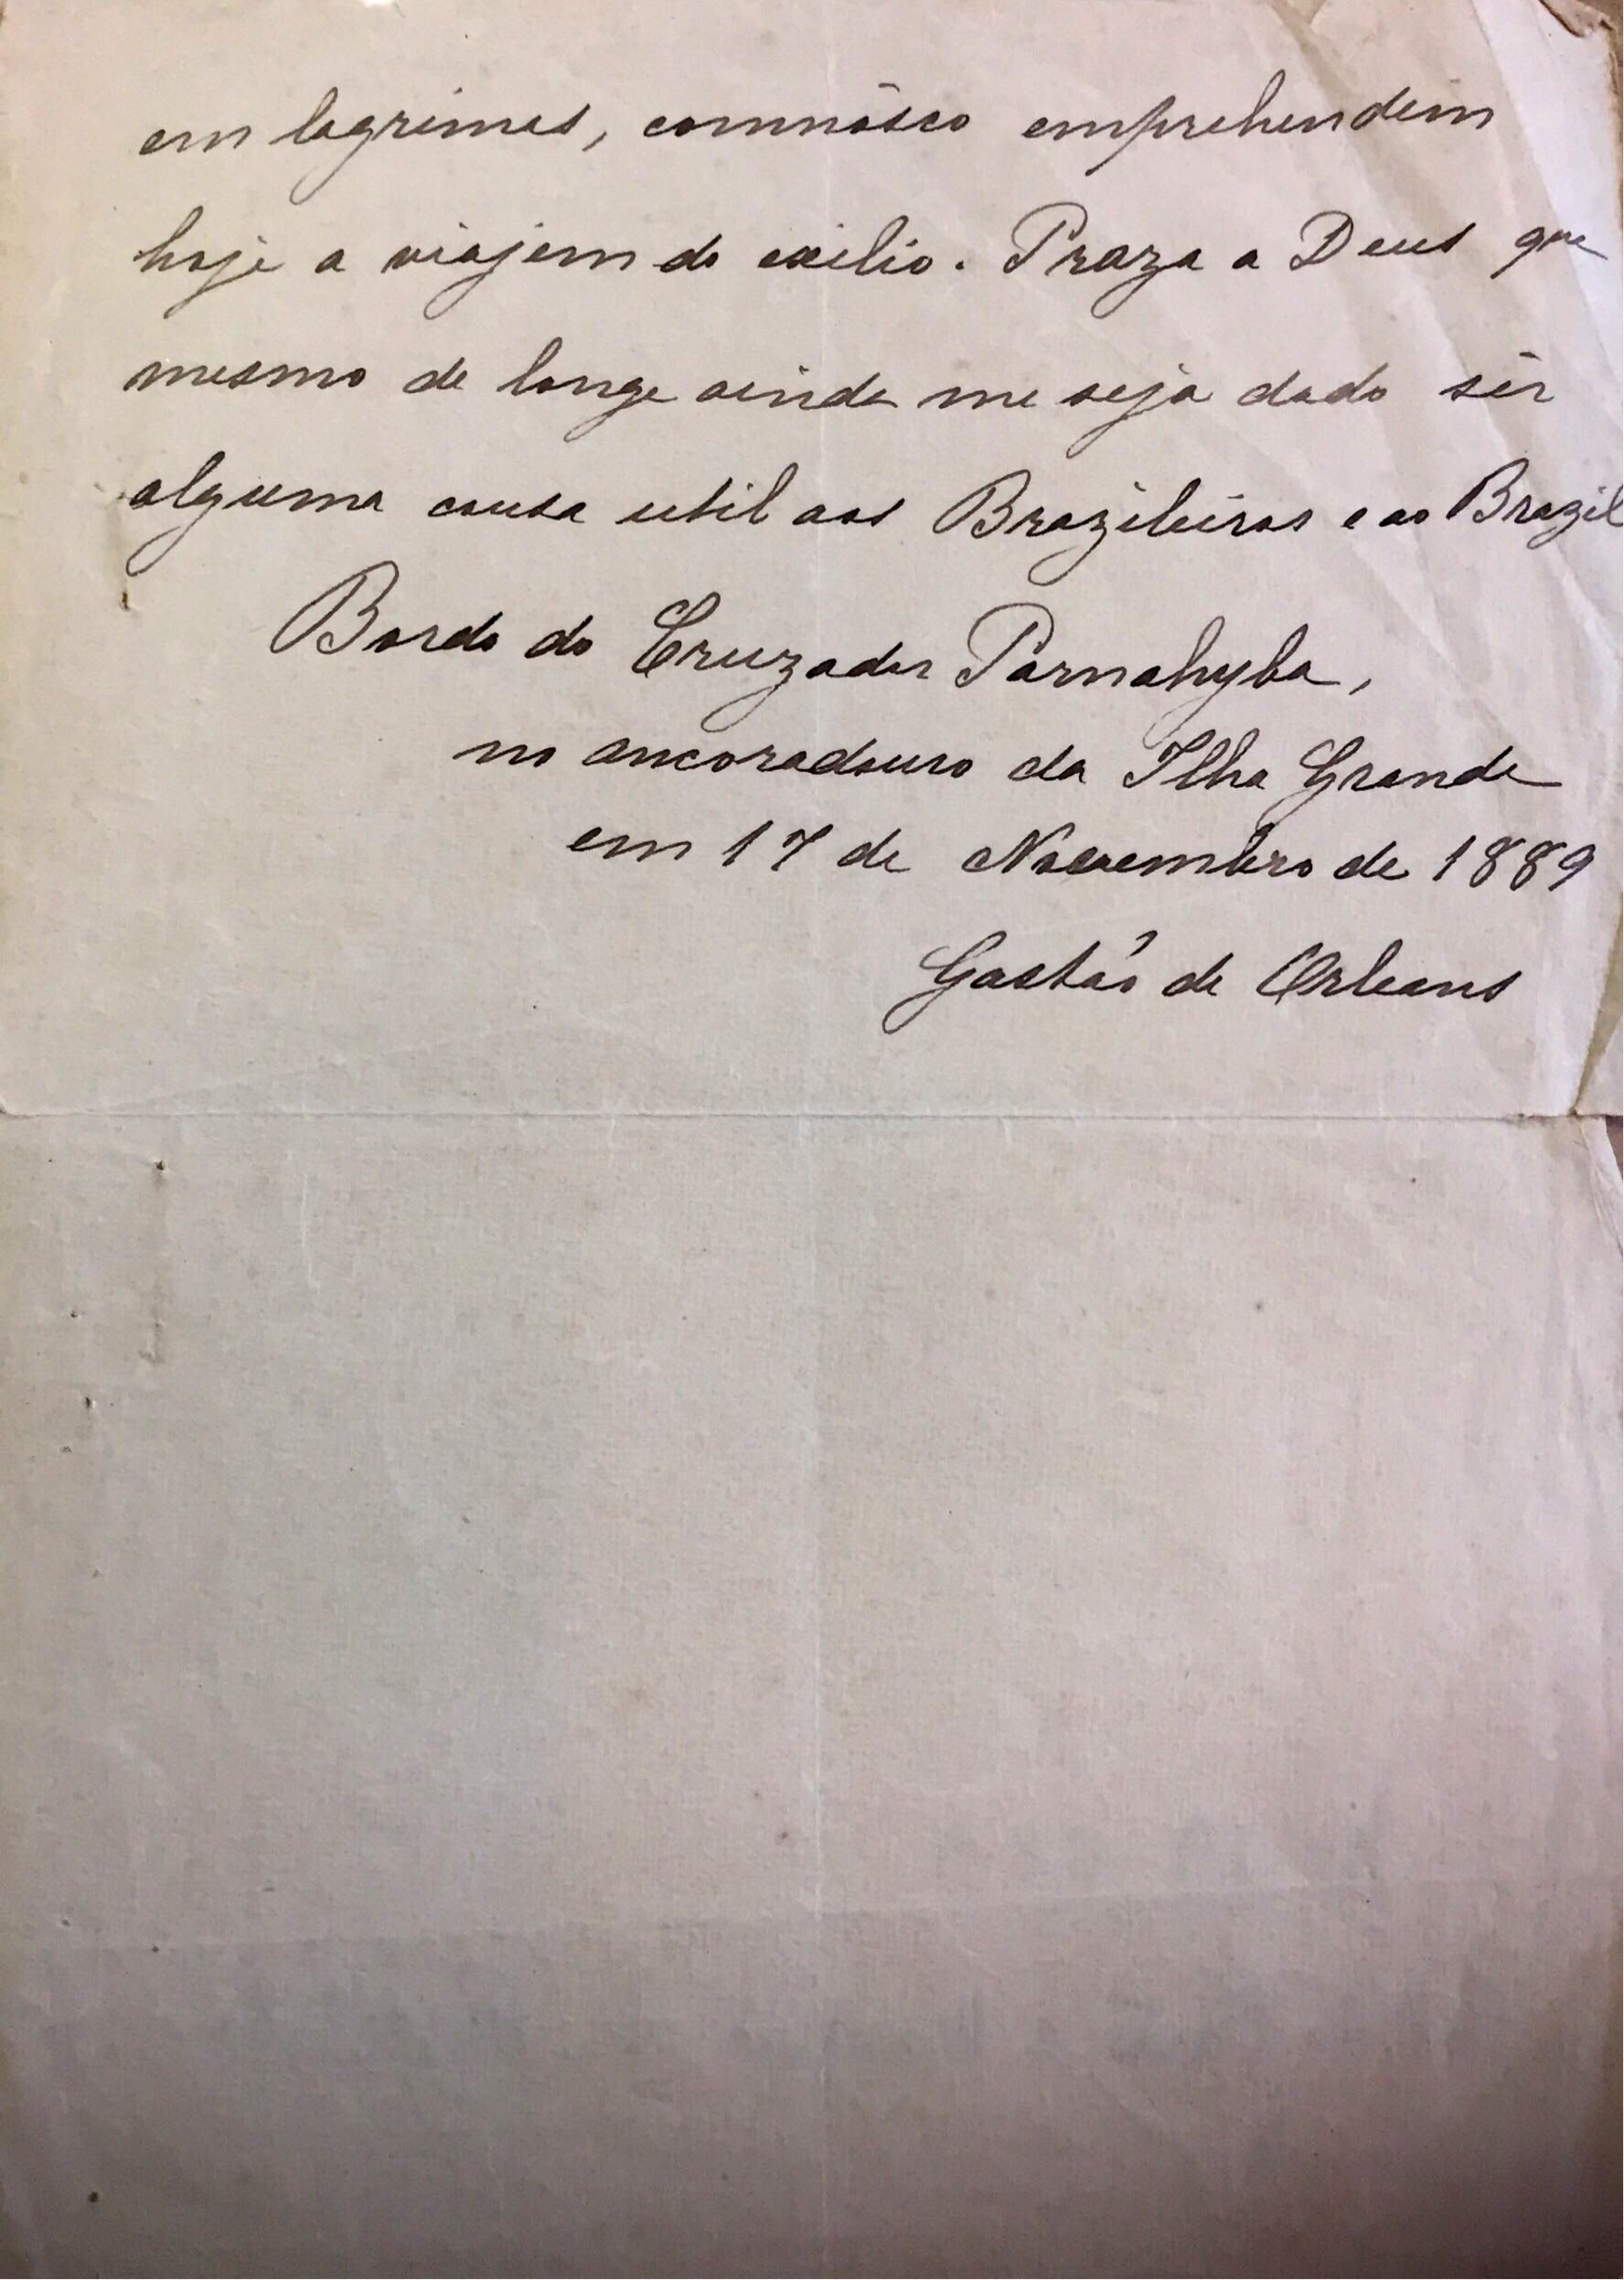 em lagrimas, comnôsco emprehendem
hoje a viajem do exilio. Praza a Deus que
mesmo de longe ainda me seja dado sêr
alguma cousa util aos Brazileiros e ao Brazil
Bordo do Cruzador Parnahyba,
no ancoradouro da Ilha Grande
em 17 de Novembro de 1889
Gastão de Orleans